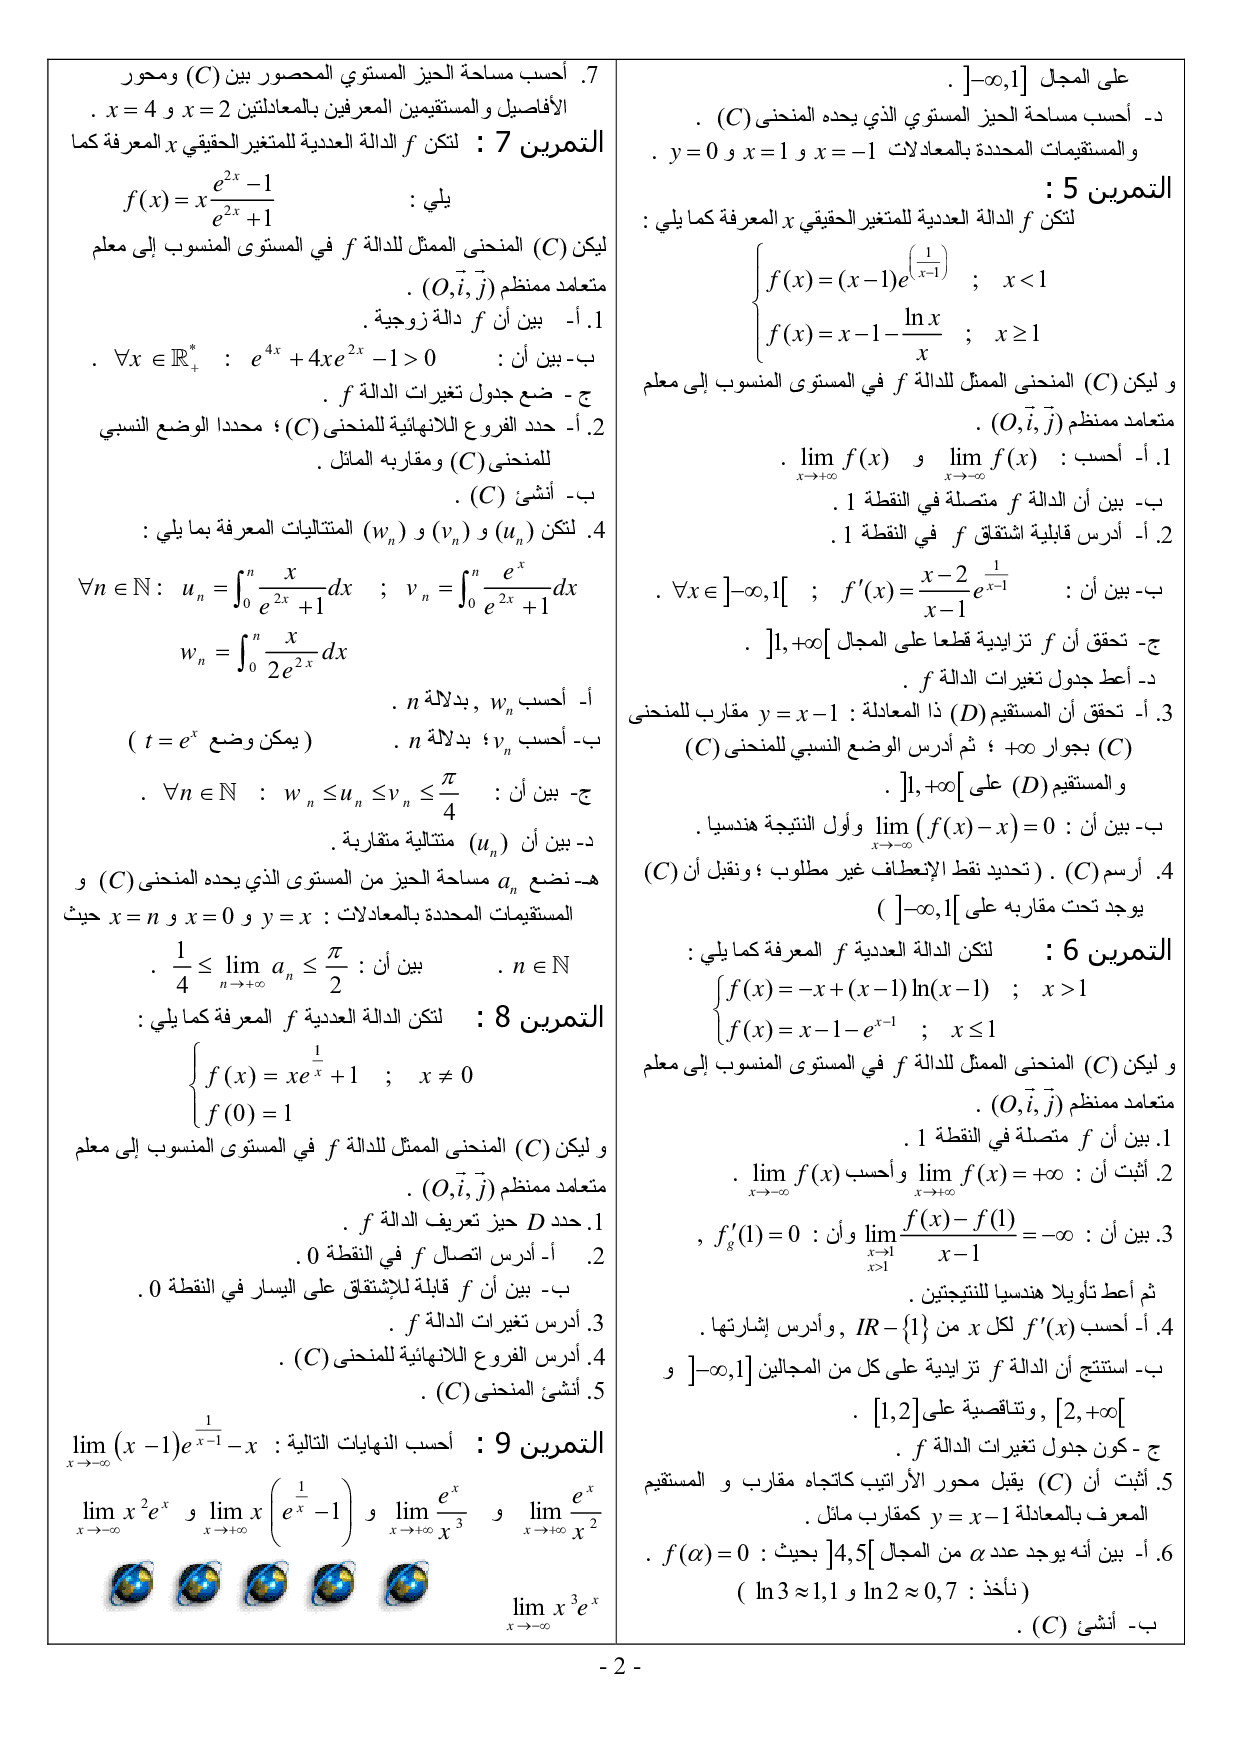 على المجال ]−∞,1] .
د- أحسب مساحة الحيز المستوي الذي يحده المنحنى (C) .
والمستقيمات المحددة بالمعادلات x = −1 و x = 1 و y = 0 .
التمرين 5 :
لتكن f الدالة العددية للمتغير الحقيقي x المعرفة كما يلي :
f(x) = (x−1)e^(1/(x−1)) ; x < 1
f(x) = x − 1 − ln x / x ; x ≥ 1
و ليكن (C) المنحنى الممثل للدالة f في المستوى المنسوب إلى معلم
متعامد ممنظم (O, i⃗, j⃗) .
1. أ- أحسب : lim_{x→−∞} f(x) و lim_{x→+∞} f(x) .
ب- بين أن الدالة f متصلة في النقطة 1 .
2. أ- أدرس قابلية اشتقاق f في النقطة 1 .
ب- بين أن : ∀x ∈ ]−∞,1[ ; f′(x) = (x−2)/(x−1) e^(1/(x−1)) .
ج- تحقق أن f تزايدية قطعا على المجال ]1,+∞[ .
د- أعط جدول تغيرات الدالة f .
3. أ- تحقق أن المستقيم (D) ذا المعادلة : y = x − 1 مقارب للمنحنى
(C) بجوار +∞ ؛ ثم أدرس الوضع النسبي للمنحنى (C)
والمستقيم (D) على ]1,+∞[ .
ب- بين أن : lim_{x→−∞} (f(x) − x) = 0 وأول النتيجة هندسيا .
4. أرسم (C) . ( تحديد نقط الإنعطاف غير مطلوب ؛ ونقبل أن (C)
يوجد تحت مقاربه على ]−∞,1[ )
التمرين 6 : لتكن الدالة العددية f المعرفة كما يلي :
f(x) = −x + (x−1)ln(x−1) ; x > 1
f(x) = x − 1 − e^(x−1) ; x ≤ 1
و ليكن (C) المنحنى الممثل للدالة f في المستوى المنسوب إلى معلم
متعامد ممنظم (O, i⃗, j⃗) .
1. بين أن f متصلة في النقطة 1 .
2. أثبت أن : lim_{x→+∞} f(x) = +∞ وأحسب lim_{x→−∞} f(x) .
3. بين أن : lim_{x→1, x>1} (f(x) − f(1))/(x − 1) = −∞ وأن : f′_g(1) = 0 ,
ثم أعط تأويلا هندسيا للنتيجتين .
4. أ- أحسب f′(x) لكل x من IR − {1} , وأدرس إشارتها .
ب- استنتج أن الدالة f تزايدية على كل من المجالين ]−∞,1] و
[2,+∞[ , وتناقصية على [1,2] .
ج - كون جدول تغيرات الدالة f .
5. أثبت أن (C) يقبل محور الأراتيب كاتجاه مقارب و المستقيم
المعرف بالمعادلة y = x − 1 كمقارب مائل .
6. أ- بين أنه يوجد عدد α من المجال ]4,5[ بحيث : f(α) = 0 .
( نأخذ : ln 2 ≈ 0,7 و ln 3 ≈ 1,1 )
ب- أنشئ (C) .
7. أحسب مساحة الحيز المستوي المحصور بين (C) ومحور
الأفاصيل والمستقيمين المعرفين بالمعادلتين x = 2 و x = 4 .
التمرين 7 : لتكن f الدالة العددية للمتغير الحقيقي x المعرفة كما
يلي : f(x) = x (e^(2x) − 1)/(e^(2x) + 1)
ليكن (C) المنحنى الممثل للدالة f في المستوى المنسوب إلى معلم
متعامد ممنظم (O, i⃗, j⃗) .
1. أ- بين أن f دالة زوجية .
ب- بين أن : ∀x ∈ ℝ*₊ : e^(4x) + 4xe^(2x) − 1 > 0 .
ج - ضع جدول تغيرات الدالة f .
2. أ- حدد الفروع اللانهائية للمنحنى (C) ؛ محددا الوضع النسبي
للمنحنى (C) ومقاربه المائل .
ب- أنشئ (C) .
4. لتكن (u_n) و (v_n) و (w_n) المتتاليات المعرفة بما يلي :
∀n ∈ ℕ : u_n = ∫_0^n x/(e^(2x) + 1) dx ; v_n = ∫_0^n e^x/(e^(2x) + 1) dx
w_n = ∫_0^n x/(2e^(2x)) dx
أ- أحسب w_n , بدلالة n .
ب- أحسب v_n ؛ بدلالة n . ( يمكن وضع t = e^x )
ج- بين أن : ∀n ∈ ℕ : w_n ≤ u_n ≤ v_n ≤ π/4 .
د- بين أن (u_n) متتالية متقاربة .
هـ- نضع a_n مساحة الحيز من المستوى الذي يحده المنحنى (C) و
المستقيمات المحددة بالمعادلات : y = x و x = 0 و x = n حيث
n ∈ ℕ . بين أن : 1/4 ≤ lim_{n→+∞} a_n ≤ π/2 .
التمرين 8 : لتكن الدالة العددية f المعرفة كما يلي :
f(x) = xe^(1/x) + 1 ; x ≠ 0
f(0) = 1
و ليكن (C) المنحنى الممثل للدالة f في المستوى المنسوب إلى معلم
متعامد ممنظم (O, i⃗, j⃗) .
1. حدد D حيز تعريف الدالة f .
2. أ- أدرس اتصال f في النقطة 0 .
ب- بين أن f قابلة للإشتقاق على اليسار في النقطة 0 .
3. أدرس تغيرات الدالة f .
4. أدرس الفروع اللانهائية للمنحنى (C) .
5. أنشئ المنحنى (C) .
التمرين 9 : أحسب النهايات التالية : lim_{x→−∞} (x−1)e^(1/(x−1)) − x
lim_{x→+∞} e^x/x^2 و lim_{x→+∞} e^x/x^3 و lim_{x→+∞} x(e^(1/x) − 1) و lim_{x→−∞} x^2 e^x
lim_{x→−∞} x^3 e^x
- 2 -